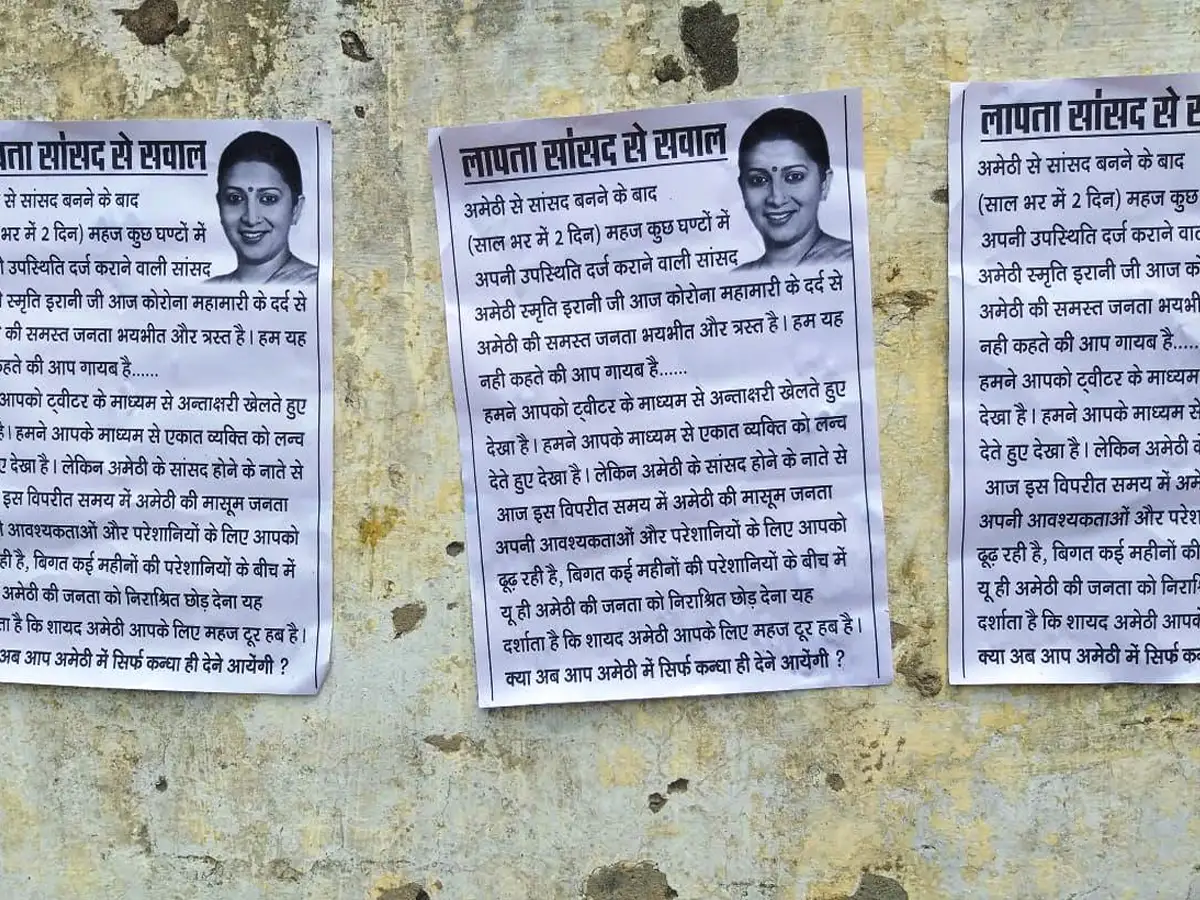 पता सांसद से सवाल
से सांसद बनने के बाद
भर में 2 दिन) महज कुछ घण्टों में
उपस्थिति दर्ज कराने वाली सांसद
स्मृति इरानी जी आज कोरोना महामारी के दर्द से
की समस्त जनता भयभीत और त्रस्त है। हम यह
कहते की आप गायब है......
आपको ट्वीटर के माध्यम से अन्ताक्षरी खेलते हुए
है। हमने आपके माध्यम से एकात व्यक्ति को लन्च
देखा है। लेकिन अमेठी के सांसद होने के नाते से
इस विपरीत समय में अमेठी की मासूम जनता
आवश्यकताओं और परेशानियों के लिए आपको
रही है, बिगत कई महीनों की परेशानियों के बीच में
अमेठी की जनता को निराश्रित छोड़ देना यह
है कि शायद अमेठी आपके लिए महज दूर हब है।
अब आप अमेठी में सिर्फ कन्धा ही देने आयेंगी ?
लापता सांसद से सवाल
अमेठी से सांसद बनने के बाद
(साल भर में 2 दिन) महज कुछ घण्टों में
अपनी उपस्थिति दर्ज कराने वाली सांसद
अमेठी स्मृति इरानी जी आज कोरोना महामारी के दर्द से
अमेठी की समस्त जनता भयभीत और त्रस्त है। हम यह
नही कहते की आप गायब है......
हमने आपको ट्वीटर के माध्यम से अन्ताक्षरी खेलते हुए
देखा है। हमने आपके माध्यम से एकात व्यक्ति को लन्च
देते हुए देखा है। लेकिन अमेठी के सांसद होने के नाते से
आज इस विपरीत समय में अमेठी की मासूम जनता
अपनी आवश्यकताओं और परेशानियों के लिए आपको
ढूढ़ रही है, बिगत कई महीनों की परेशानियों के बीच में
यू ही अमेठी की जनता को निराश्रित छोड़ देना यह
दर्शाता है कि शायद अमेठी आपके लिए महज दूर हब है।
क्या अब आप अमेठी में सिर्फ कन्धा ही देने आयेंगी ?
लापता सांसद से
अमेठी से सांसद बनने के बाद
(साल भर में 2 दिन) महज कुछ
अपनी उपस्थिति दर्ज कराने
अमेठी स्मृति इरानी जी आज
अमेठी की समस्त जनता
नही कहते की आप गायब है.....
हमने आपको ट्वीटर के माध्यम
देखा है। हमने आपके माध्यम से
देते हुए देखा है। लेकिन अमेठी
आज इस विपरीत समय में
अपनी आवश्यकताओं और
ढूढ़ रही है, बिगत कई महीनों की
यू ही अमेठी की जनता को
दर्शाता है कि शायद अमेठी
क्या अब आप अमेठी में सिर्फ